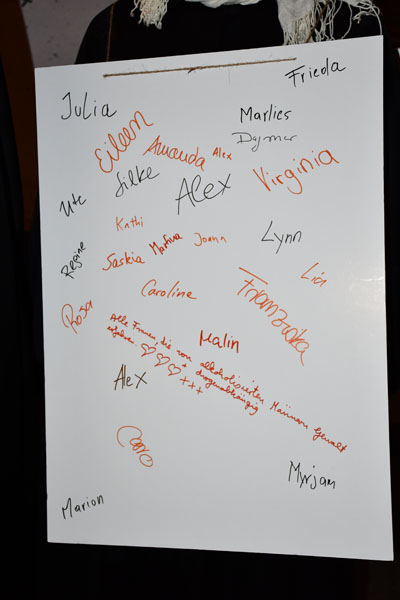 Frieda
Julia
Marlies
Dagmar
Eileen
Amanda
Alex
Virginia
Silke
Alex
Ute
Kathi
Martina
Joann
Lynn
Regine
Saskia
Lia
Caroline
Franziska
Rosa
Malin
Alle Frauen, die von alkoholisierten Männern Gewalt
erfahren. ♡♡♡ + drogenabhängig
+++
Alex
Myrjam
Marion